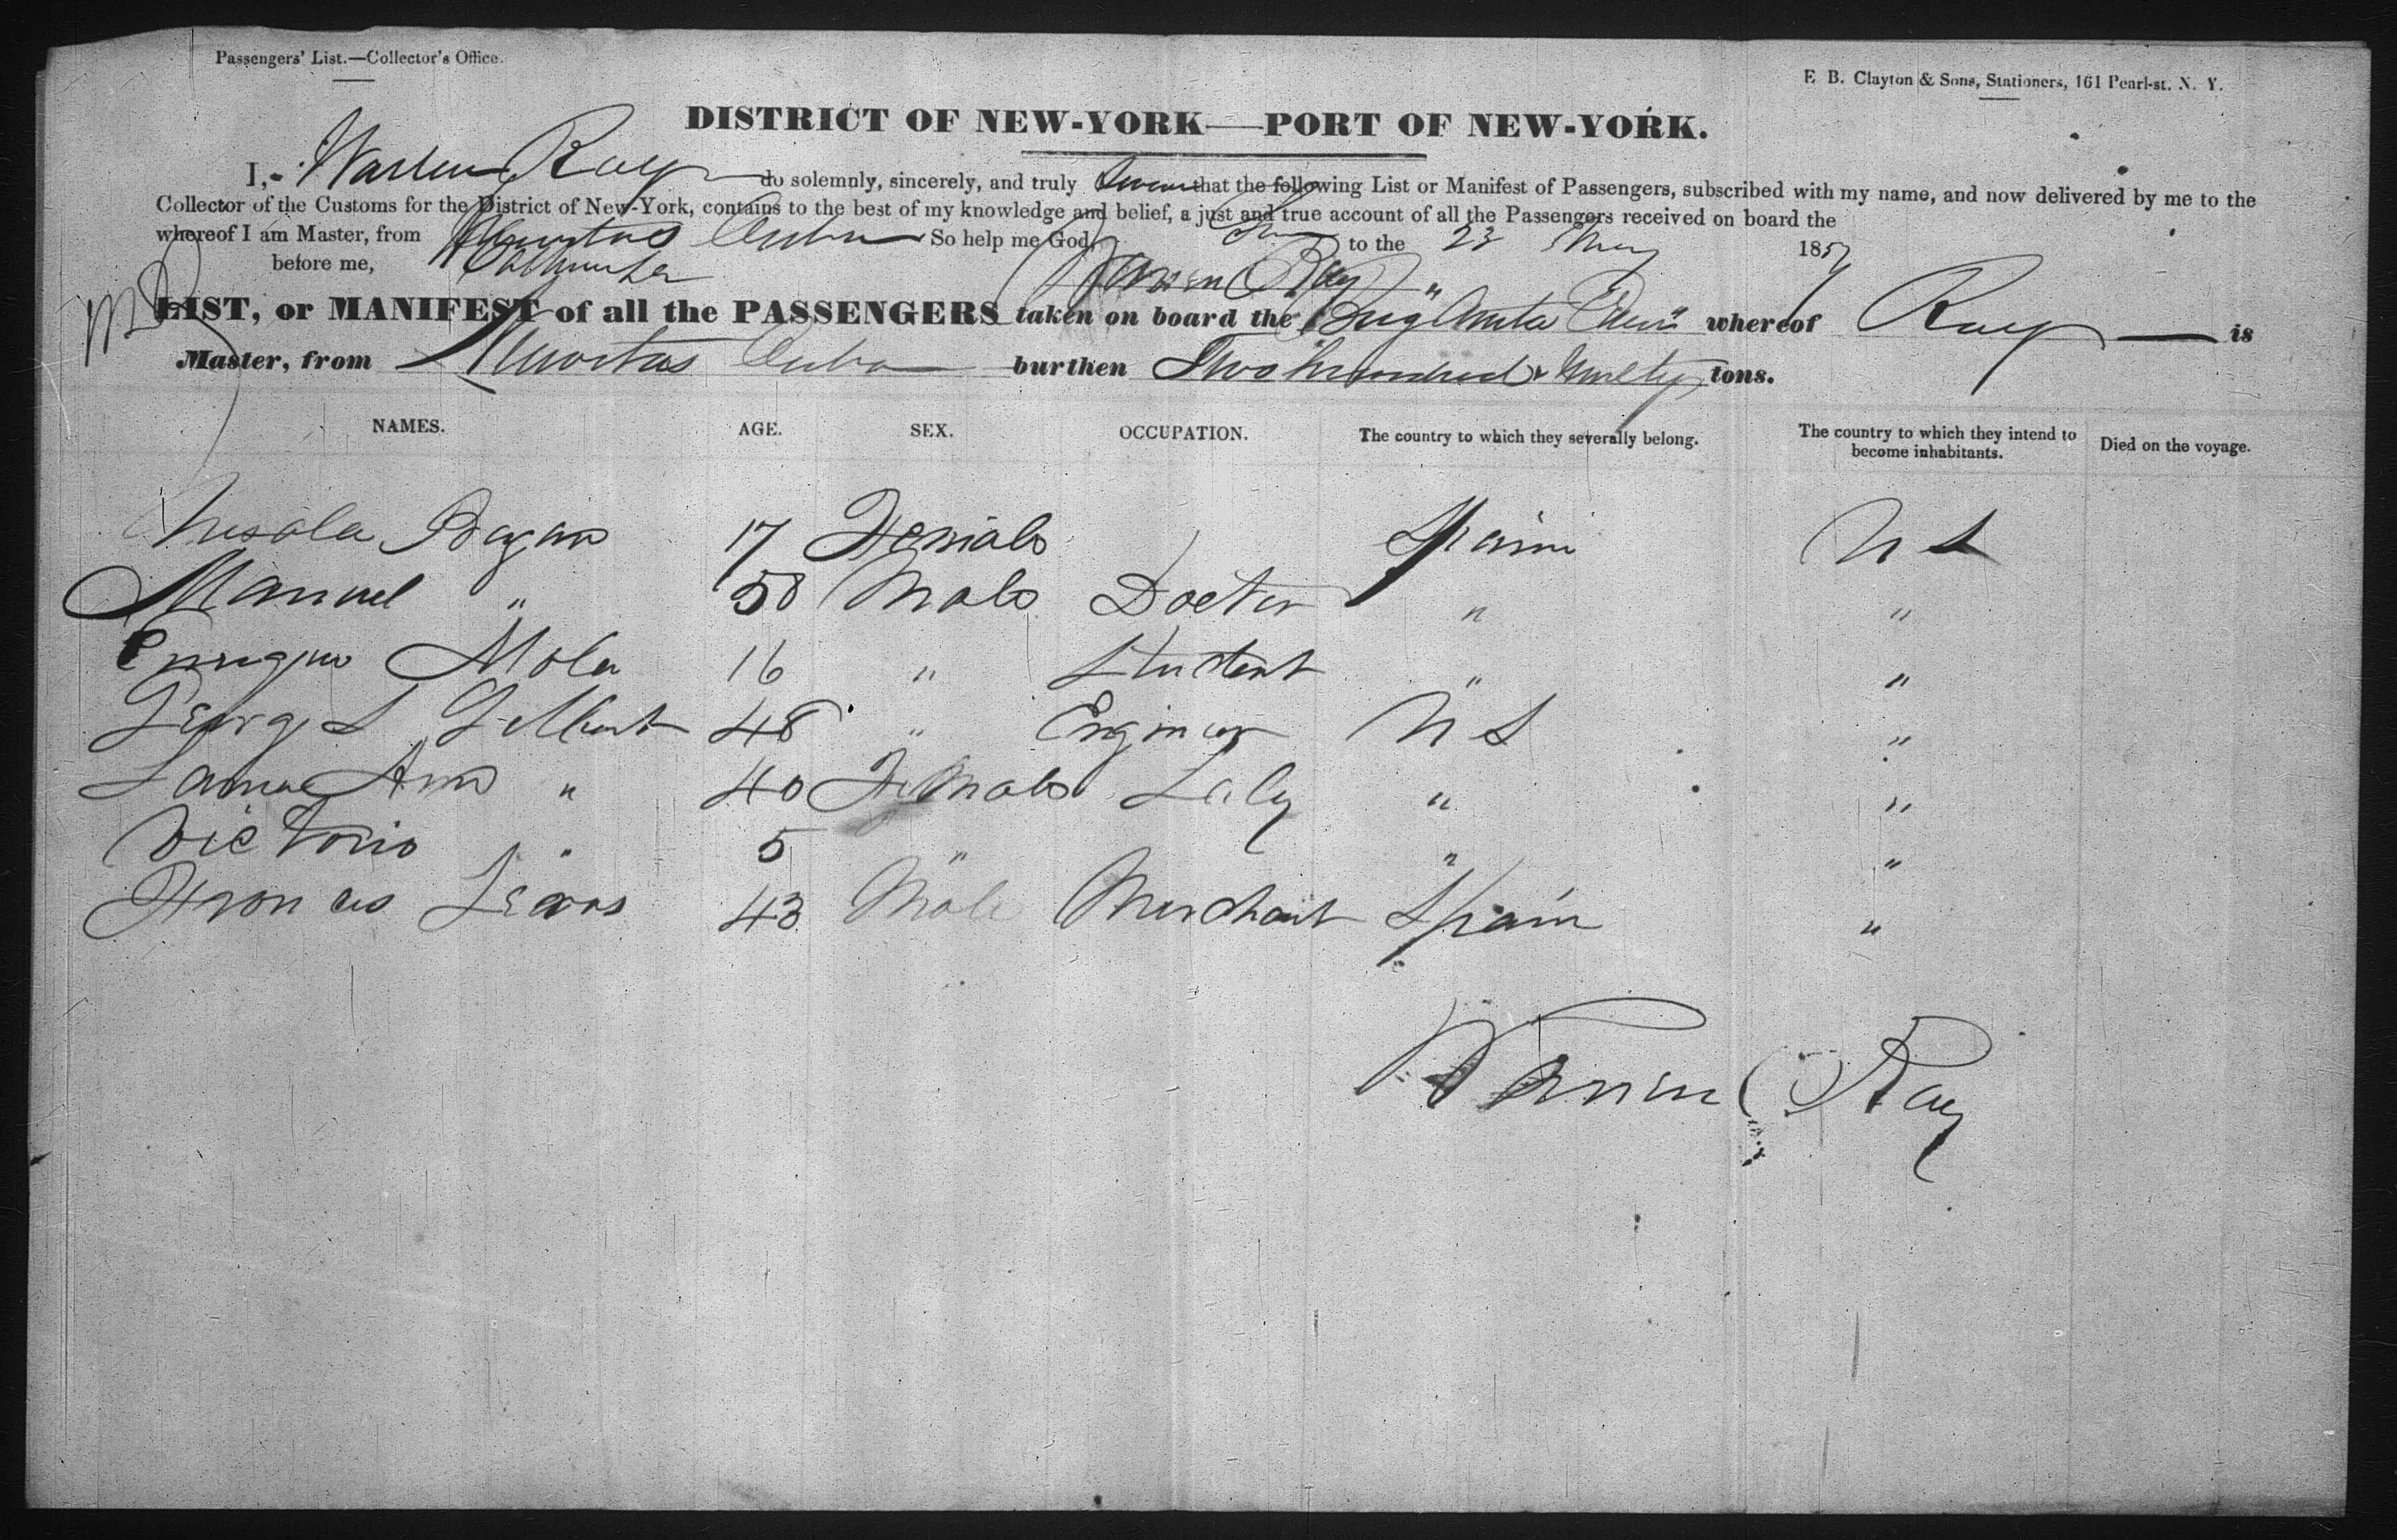 Passengers' List.—Collector's Office.
E B. Clayton & Sons, Stationers, 161 Pearl-st. N. Y.
DISTRICT OF NEW-YORK—PORT OF NEW-YORK.
I, Warren Ray do solemnly, sincerely, and truly Swear that the following List or Manifest of Passengers, subscribed with my name, and now delivered by me to the
Collector of the Customs for the District of New-York, contains to the best of my knowledge and belief, a just and true account of all the Passengers received on board the
whereof I am Master, from Nuevitas Cuba So help me God. to the 23 May 1857
before me, Warren Ray
LIST, or MANIFEST of all the PASSENGERS taken on board the Brig whereof Ray is
Master, from Nuevitas Cuba burthen Two hundred & Ninety tons.
NAMES. AGE. SEX. OCCUPATION. The country to which they severally belong. The country to which they intend to become inhabitants. Died on the voyage.
17 Female Spain U S
Manuel " 50 Male Doctor " "
Enrique Mola 16 " Student " "
George L Gilbert 48 " Engineer U S "
Ann " 40 Female Lady " "
Victoria " 5 " " "
43 Male Merchant Spain "
Warren Ray